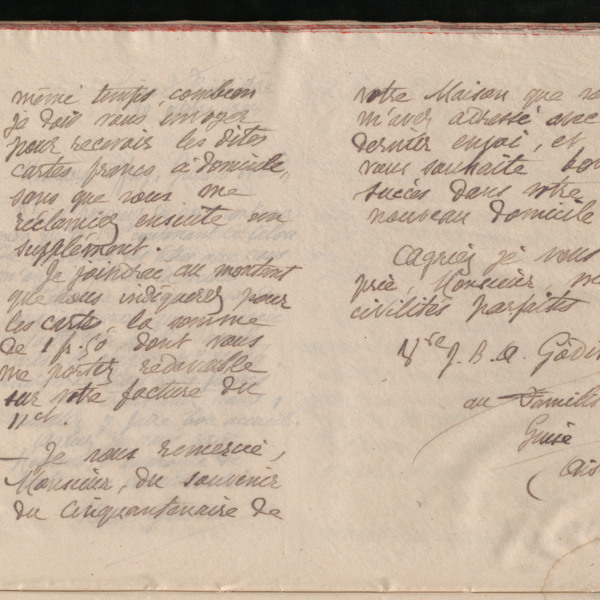 même temps, combien
je dois vous envoyer
pour recevoir les dites
cartes franco, à domicile,
sans que vous me
réclamiez ensuite un
supplément.
Je joindrai au montant
que vous indiquerez pour
les cartes, la somme
de 1 fr. 50 dont vous
me portez redevable
sur votre facture du
11 ct.
— Je vous remercie,
Monsieur, du souvenir
du Cinquantenaire de
votre Maison que vo
m'avez adressé avec
dernier envoi, et
vous souhaite bon
succès dans votre
nouveau domicile
Cagriez je vous
prie, Monsieur, me
civilités parfaites
Vve J. B. A. Godin
au Familis
Guise
(Ais